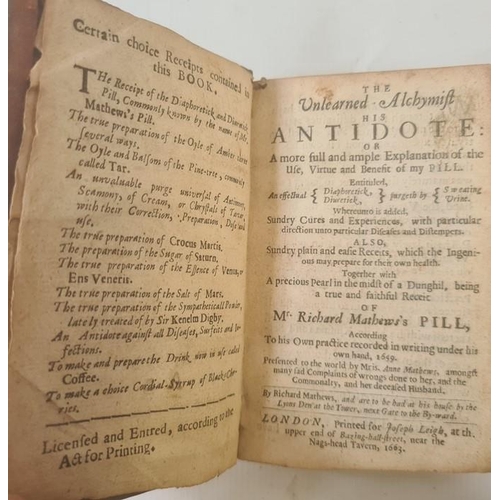 Certain choice Receipts contained in
this BOOK.
THe Receipt of the Diaphoretick and Diuretick
Pill, Commonly known by the name of Mr.
Mathews's Pill.
The true preparation of the Oyle of Amber three
several ways.
The Oyle and Balsom of the Pine-tree, commonly
called Tar.
An unvaluable purge universal of Antimony,
Scamony, of Cream, or Chrystals of Tartar,
with their Correction, Preparation, Dose and
use.
The true preparation of Crocus Martis.
The preparation of the Sugar of Saturn.
The true preparation of the Essence of Venus, or
Ens Veneris.
The true preparation of the Salt of Mars.
The true preparation of the Sympatheticall Powder,
lately treated of by Sir Kenelm Digby.
An Antidote against all Diseases, Surfeits and In-
fections.
To make and prepare the Drink now in use called
Coffee.
To make a choice Cordial-Syrup of Black-Cher-
ries.
Licensed and Entred, according to the
Act for Printing.
THE
Unlearned Alchymist
HIS
ANTIDOTE:
OR
A more full and ample Explanation of the
Use, Virtue and Benefit of my PILL.
Entituled,
An effectual { Diaphoretick, } purgeth by { Sweating
Diuretick, Urine.
Whereunto is added,
Sundry Cures and Experiences, with particular
direction unto particular Diseases and Distempers.
ALSO,
Sundry plain and easie Receits, which the Ingeni-
ous may prepare for their own health.
Together with
A precious Pearl in the midst of a Dunghil, being
a true and faithful Receit
OF
Mr. Richard Mathews's PILL,
According
To his Own practice recorded in writing under his
own hand, 1659.
Presented to the world by Mris. Anne Mathews, amongst
many sad Complaints of wrongs done to her, and the
Commonalty, and her deceased Husband.
By Richard Mathews, and are to be had at his house by the
Lyons Den at the Tower, next Gate to the By-ward.
LONDON, Printed for Joseph Leigh, at the
upper end of Bazing-hall-street, near the
Nags-head Tavern, 1663.